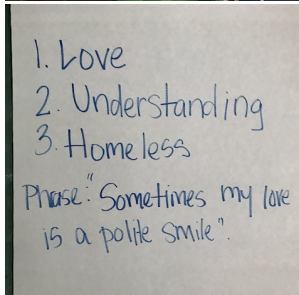 1. Love
2. Understanding
3. Homeless
Phase: "Sometimes my love
is a polite smile".